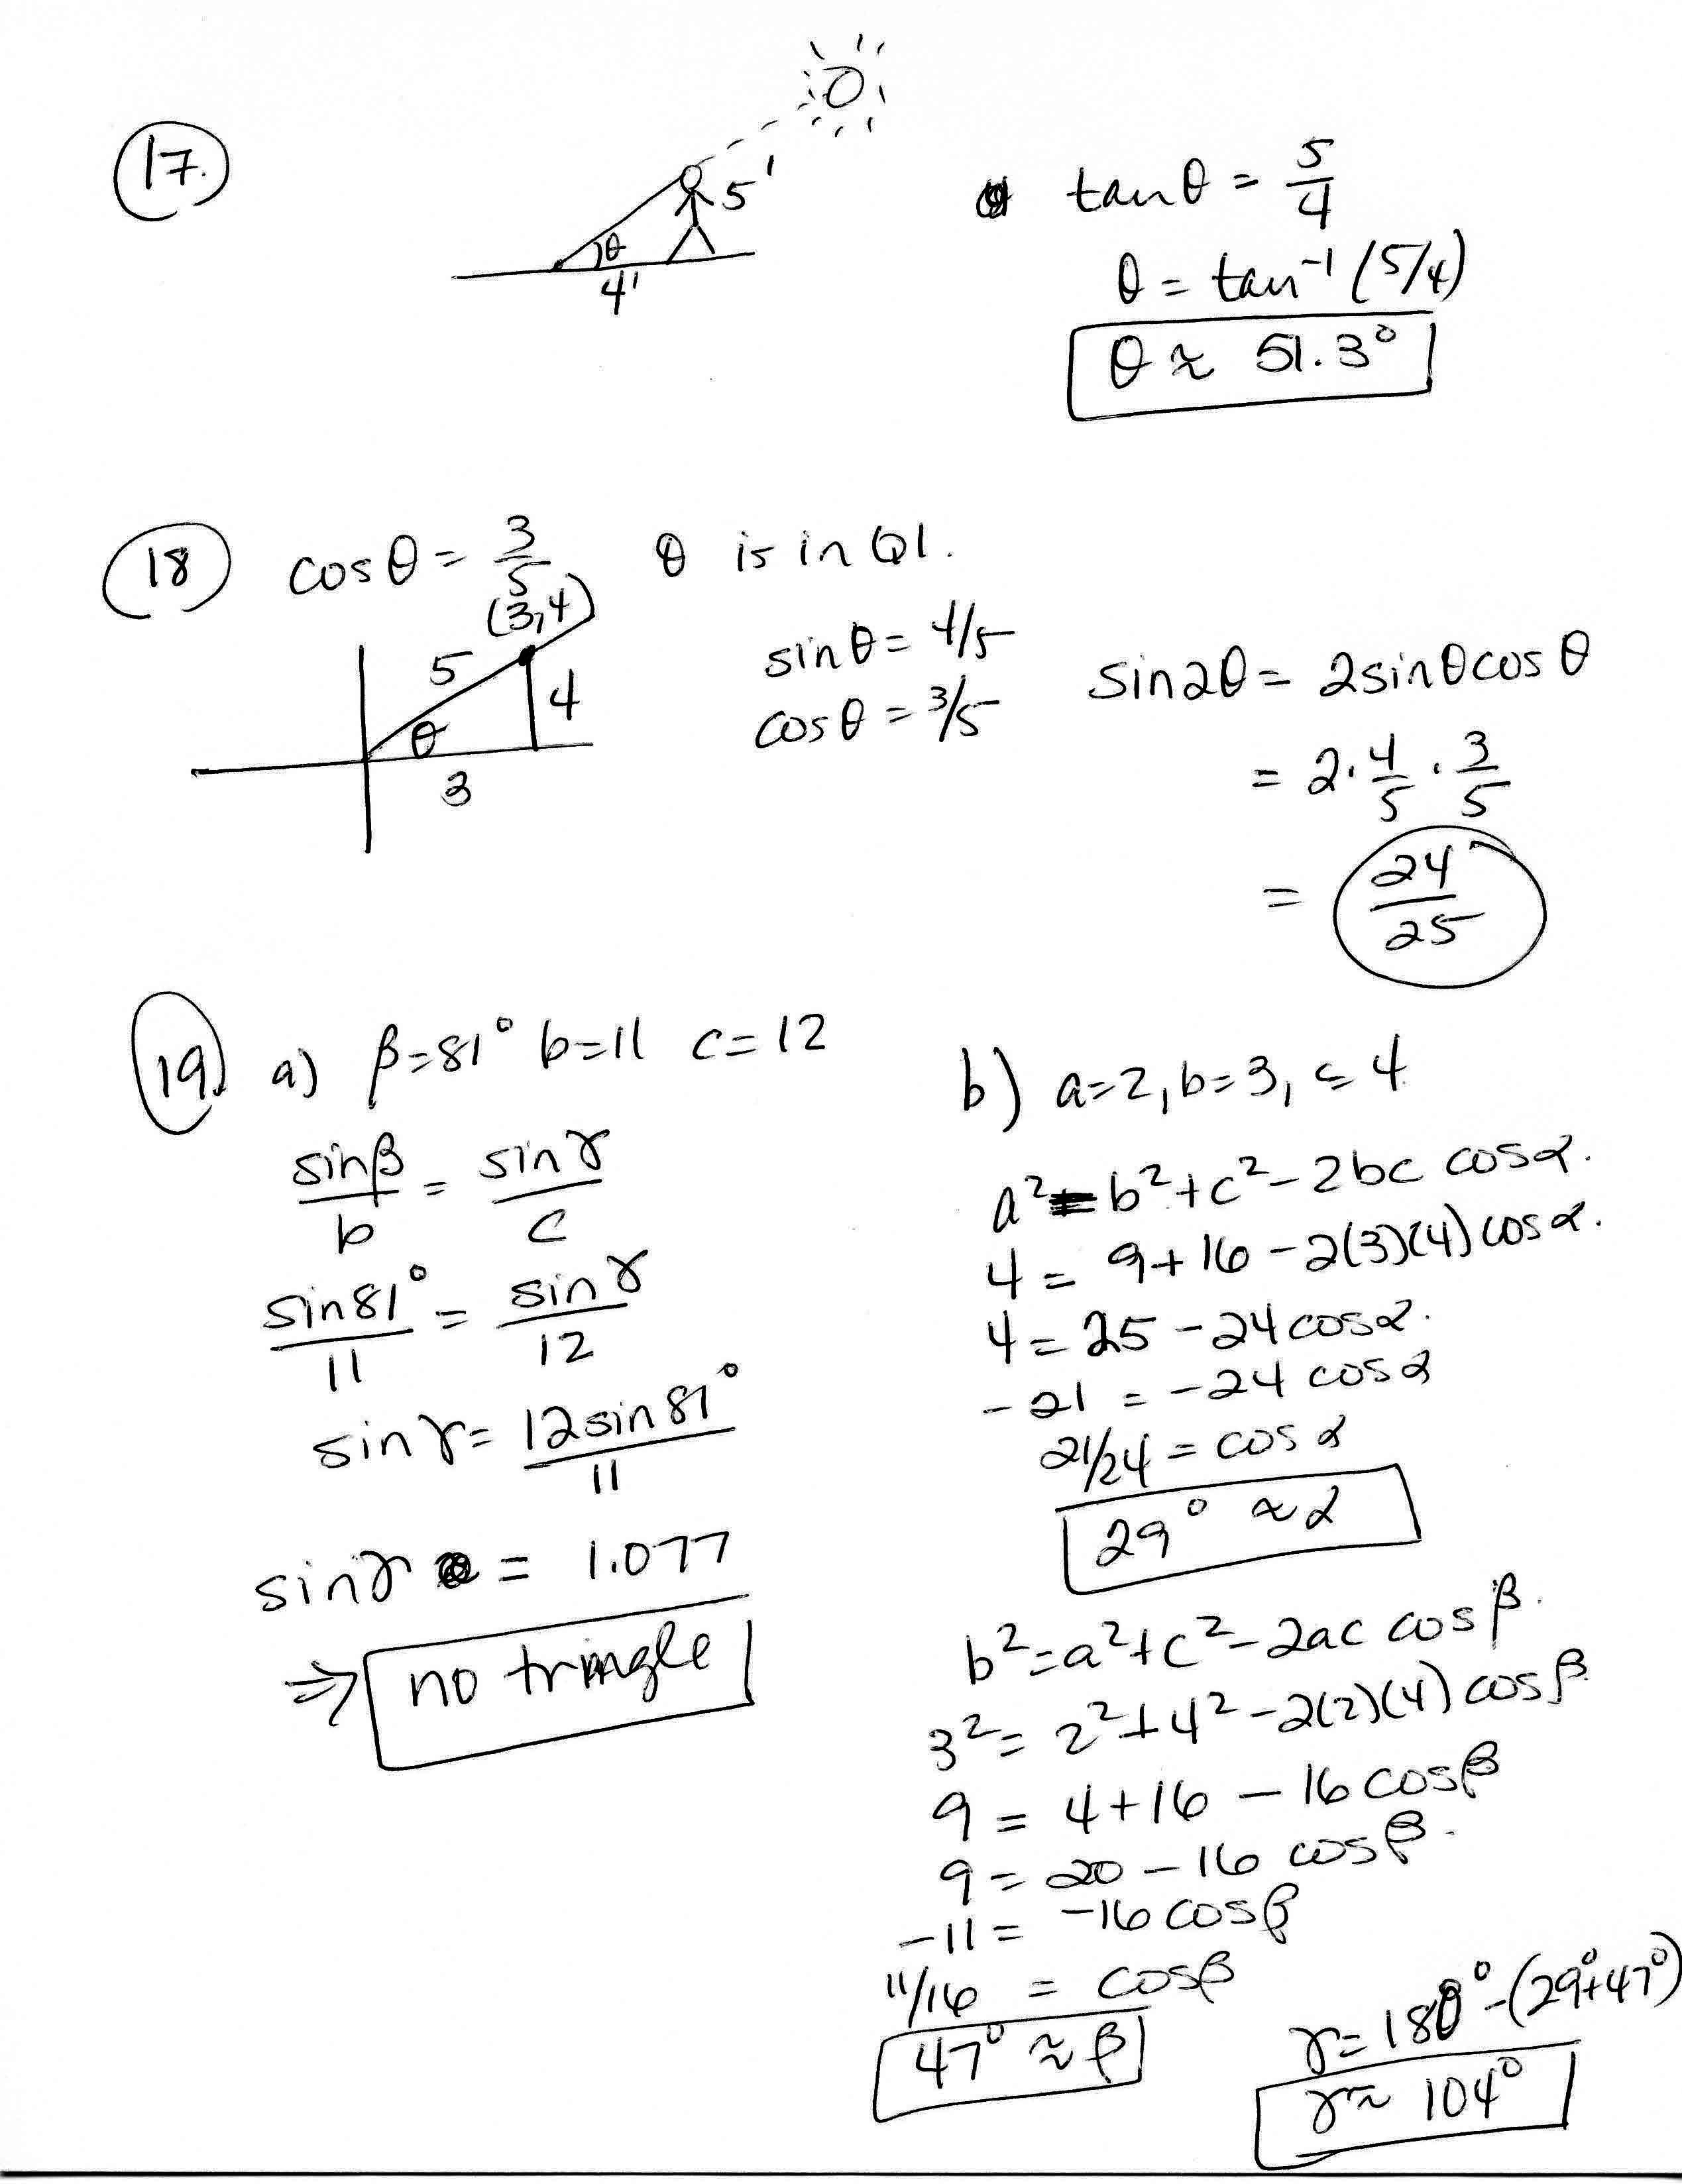 17.
5'
θ
4'
tanθ = 5/4
θ = tan⁻¹(5/4)
θ ≈ 51.3°
18 cosθ = 3/5 θ is in Q1.
(3,4)
5
4
θ
3
sinθ = 4/5
cosθ = 3/5
sin2θ = 2sinθcosθ
= 2·4/5·3/5
= 24/25
19. a) β=81° b=11 c=12
sinβ/b = sinγ/c
sin81°/11 = sinγ/12
sinγ = 12sin81°/11
sinγ = 1.077
⇒ no triangle
b) a=2, b=3, c=4
a² = b²+c²-2bc cosα.
4 = 9+16-2(3)(4)cosα.
4 = 25-24cosα.
-21 = -24cosα
21/24 = cosα
29° ≈ α
b²=a²+c²-2ac cosβ.
3²=2²+4²-2(2)(4)cosβ
9 = 4+16-16cosβ
9 = 20-16cosβ.
-11 = -16cosβ
11/16 = cosβ
47° ≈ β
γ=180°-(29°+47°)
γ≈ 104°